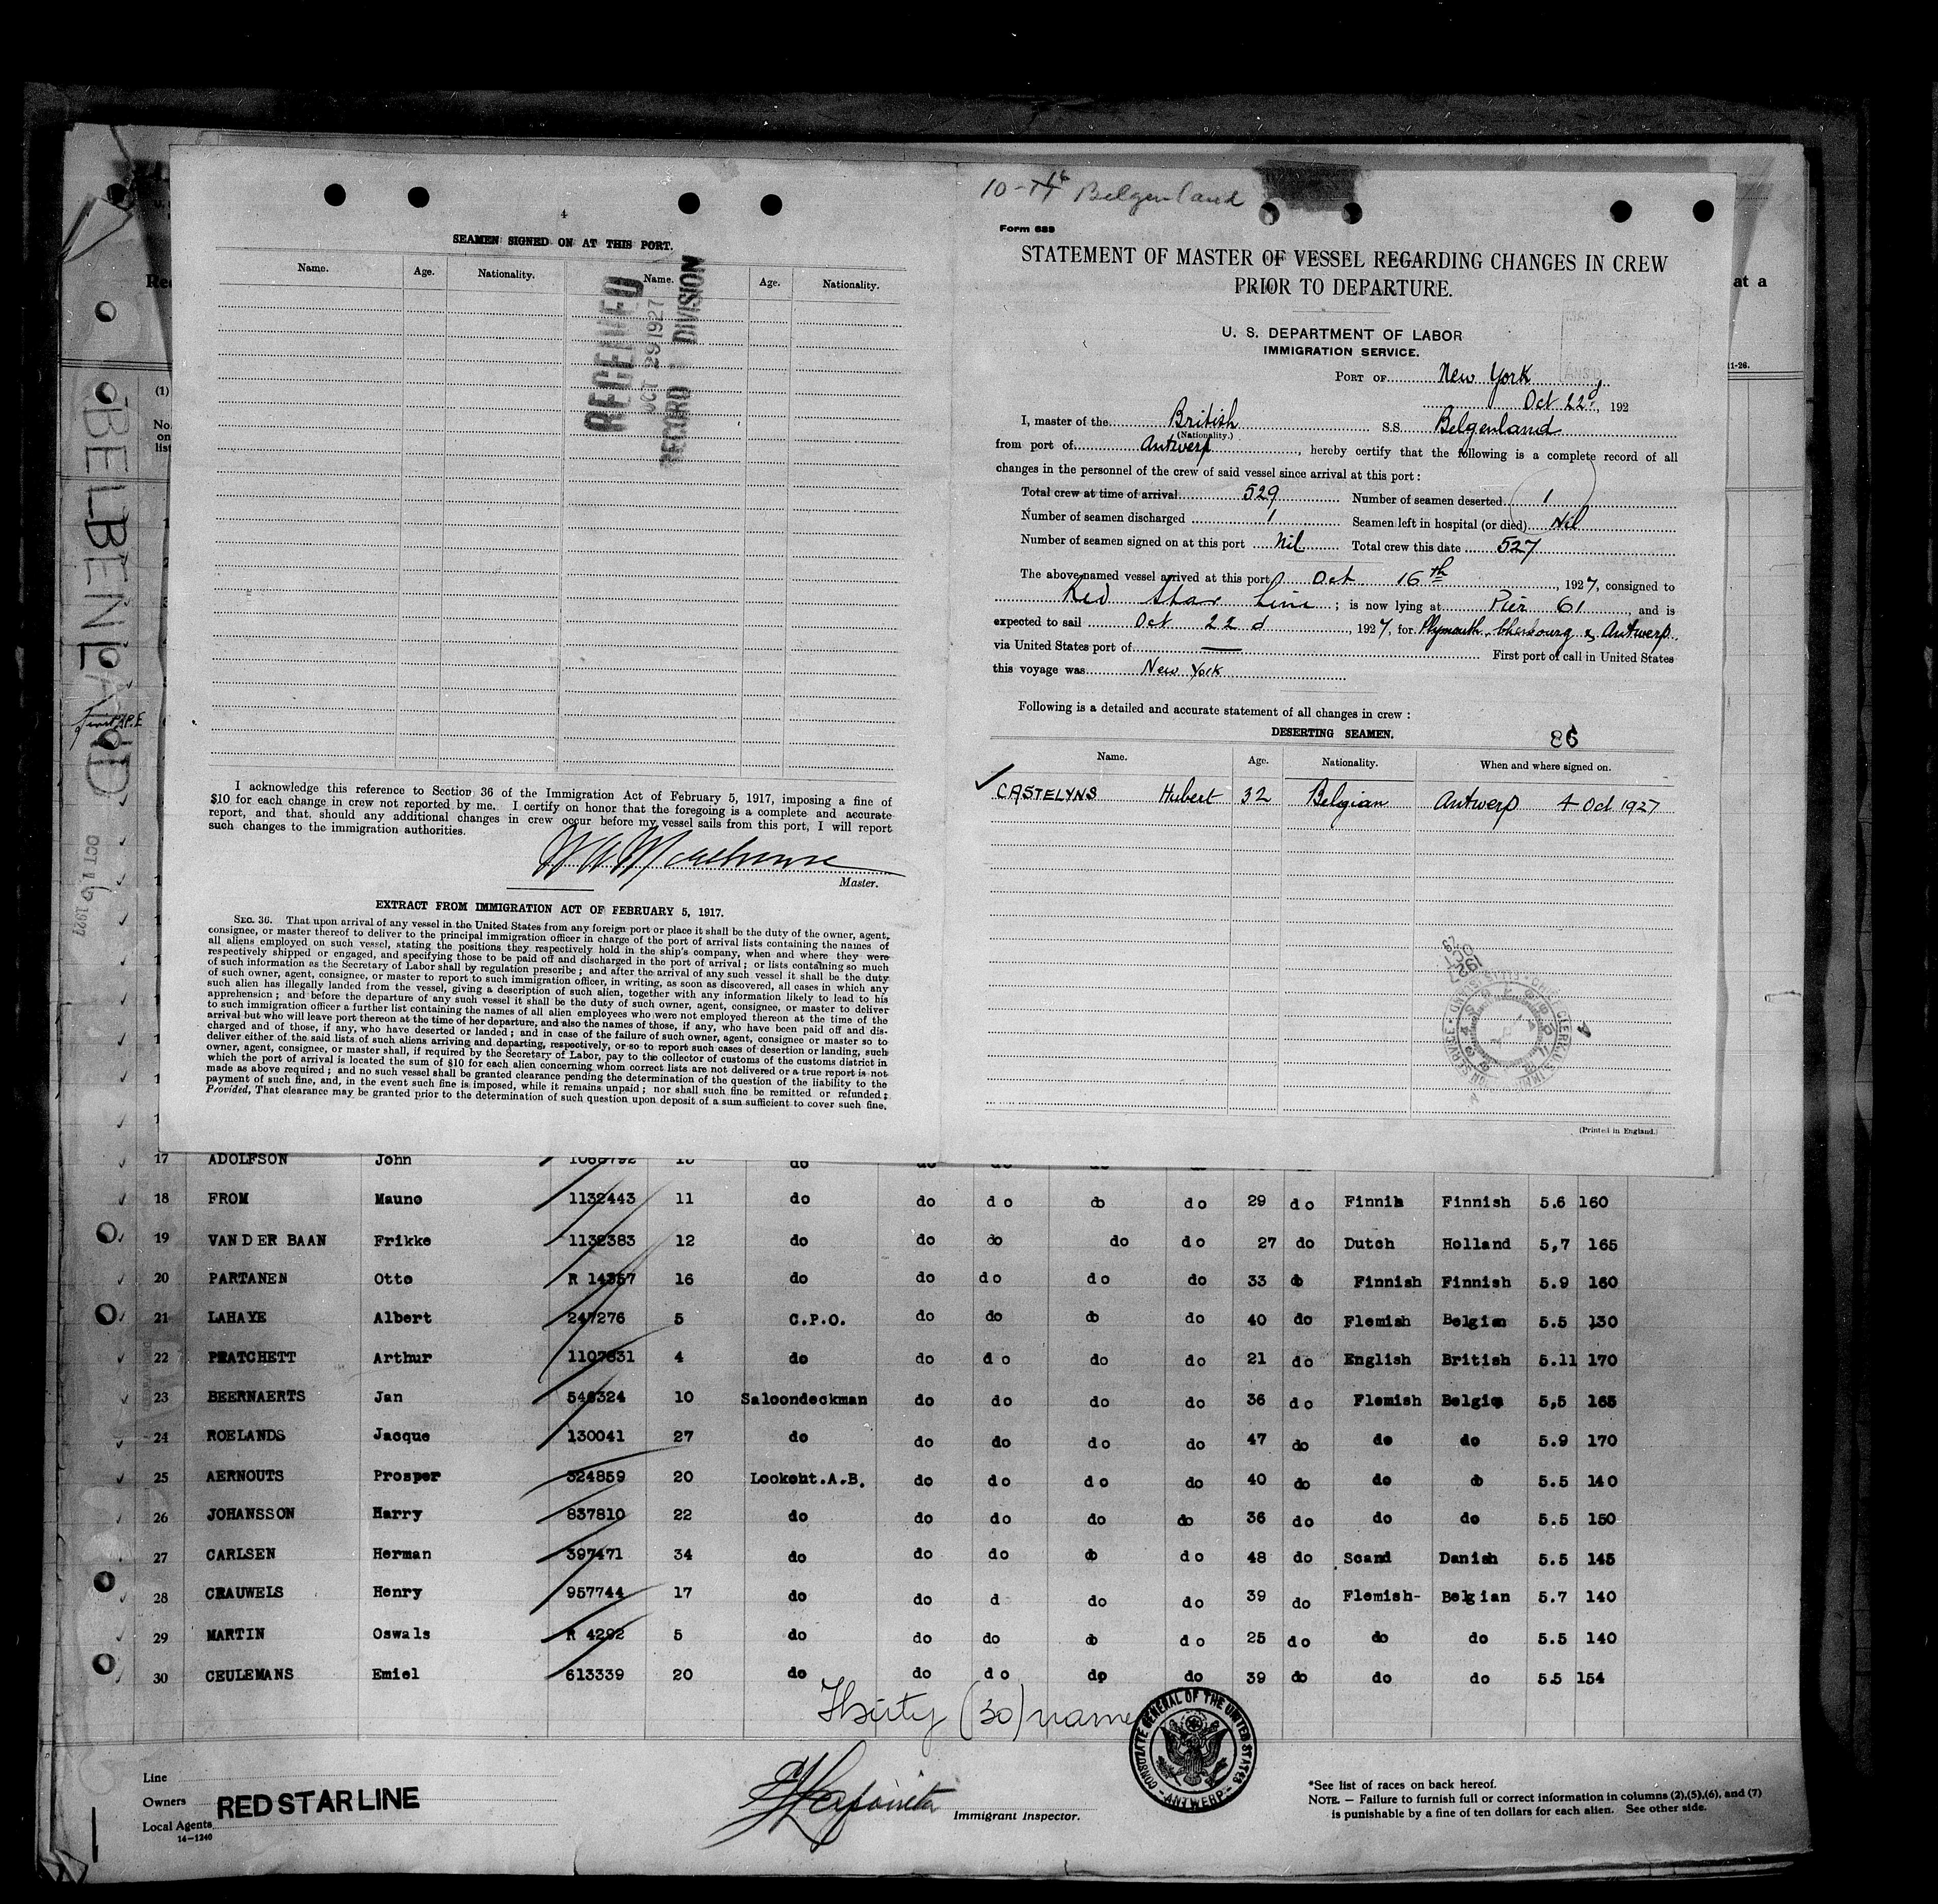 4
SEAMEN SIGNED ON AT THIS PORT.
Name. Age. Nationality. Name. Age. Nationality.
RECEIVED
OCT 29 1927
RECORD DIVISION
I acknowledge this reference to Section 36 of the Immigration Act of February 5, 1917, imposing a fine of
$10 for each change in crew not reported by me. I certify on honor that the foregoing is a complete and accurate
report, and that, should any additional changes in crew occur before my vessel sails from this port, I will report
such changes to the immigration authorities.
Master.
EXTRACT FROM IMMIGRATION ACT OF FEBRUARY 5, 1917.
SEC. 36. That upon arrival of any vessel in the United States from any foreign port or place it shall be the duty of the owner, agent,
consignee, or master thereof to deliver to the principal immigration officer in charge of the port of arrival lists containing the names of
all aliens employed on such vessel, stating the positions they respectively hold in the ship's company, when and where they were
respectively shipped or engaged, and specifying those to be paid off and discharged in the port of arrival; or lists containing so much
of such information as the Secretary of Labor shall by regulation prescribe; and after the arrival of any such vessel it shall be the duty
of such owner, agent, consignee, or master to report to such immigration officer, in writing, as soon as discovered, all cases in which any
such alien has illegally landed from the vessel, giving a description of such alien, together with any information likely to lead to his
apprehension; and before the departure of any such vessel it shall be the duty of such owner, agent, consignee, or master to deliver
to such immigration officer a further list containing the names of all alien employees who were not employed thereon at the time of the
arrival but who will leave port thereon at the time of her departure, and also the names of those, if any, who have been paid off and dis-
charged and of those, if any, who have deserted or landed; and in case of the failure of such owner, agent, consignee or master so to
deliver either of the said lists of such aliens arriving and departing, respectively, or so to report such cases of desertion or landing, such
owner, agent, consignee, or master shall, if required by the Secretary of Labor, pay to the collector of customs of the customs district in
which the port of arrival is located the sum of $10 for each alien concerning whom correct lists are not delivered or a true report is not
made as above required; and no such vessel shall be granted clearance pending the determination of the question of the liability to the
payment of such fine, and, in the event such fine is imposed, while it remains unpaid; nor shall such fine be remitted or refunded:
Provided, That clearance may be granted prior to the determination of such question upon deposit of a sum sufficient to cover such fine.
Belgenland
Form 689
STATEMENT OF MASTER OF VESSEL REGARDING CHANGES IN CREW
PRIOR TO DEPARTURE.
U. S. DEPARTMENT OF LABOR
IMMIGRATION SERVICE.
PORT OF New York
Oct 22d, 192
I, master of the British S.S. Belgenland
(Nationality.)
from port of Antwerp, hereby certify that the following is a complete record of all
changes in the personnel of the crew of said vessel since arrival at this port:
Total crew at time of arrival 529 Number of seamen deserted 1
Number of seamen discharged 1 Seamen left in hospital (or died) Nil
Number of seamen signed on at this port Nil Total crew this date 527
The above-named vessel arrived at this port Oct 16th, 1927, consigned to
Red Star Line; is now lying at Pier 61, and is
expected to sail Oct 22d, 1927, for Plymouth, Cherbourg & Antwerp.
via United States port of — First port of call in United States
this voyage was New York
Following is a detailed and accurate statement of all changes in crew:
DESERTING SEAMEN. 86
Name. Age. Nationality. When and where signed on.
✓ CASTELYNS Hubert 32 Belgian Antwerp 4 Oct 1927
(Printed in England.)
at a
11-26.
(1)
No. on list
BELGENLAND
OCT 16 1927
17 ADOLFSON John do do do do do
18 FROM Mauno 1132443 11 do do do do do 29 do Finnih Finnish 5.6 160
19 VAN DER BAAN Frikke 1132383 12 do do do do do 27 do Dutch Holland 5,7 165
20 PARTANEN Otto R 14357 16 do do do do do 33 do Finnish Finnish 5.9 160
21 LAHAYE Albert 247276 5 C.P.O. do do do do 40 do Flemish Belgian 5.5 130
22 PRATCHETT Arthur 1107831 4 do do do do do 21 do English British 5.11 170
23 BEERNAERTS Jan 546324 10 Saloondeckman do do do do 36 do Flemish Belgia 5,5 165
24 ROELANDS Jacque 130041 27 do do do do do 47 do do do 5.9 170
25 AERNOUTS Prosper 324859 20 Lookoht.A.B. do do do do 40 do do do 5.5 140
26 JOHANSSON Harry 837810 22 do do do do do 36 do do do 5.5 150
27 CARLSEN Herman 397471 34 do do do do do 48 do Scand Danish 5.5 145
28 CRAUWELS Henry 957744 17 do do d do do 39 do Flemish- Belgian 5.7 140
29 MARTIN Oswals R 4292 5 do do do do do 25 do do do 5.5 140
30 CEULEMANS Emiel 613339 20 do do do do do 39 do do do 5.5 154
Thirty (30) name
CONSULATE GENERAL OF THE UNITED STATES
ANTWERP
Line
Owners RED STAR LINE
Local Agents
14-1240
Immigrant Inspector.
*See list of races on back hereof.
NOTE. — Failure to furnish full or correct information in columns (2),(5),(6), and (7)
is punishable by a fine of ten dollars for each alien. See other side.